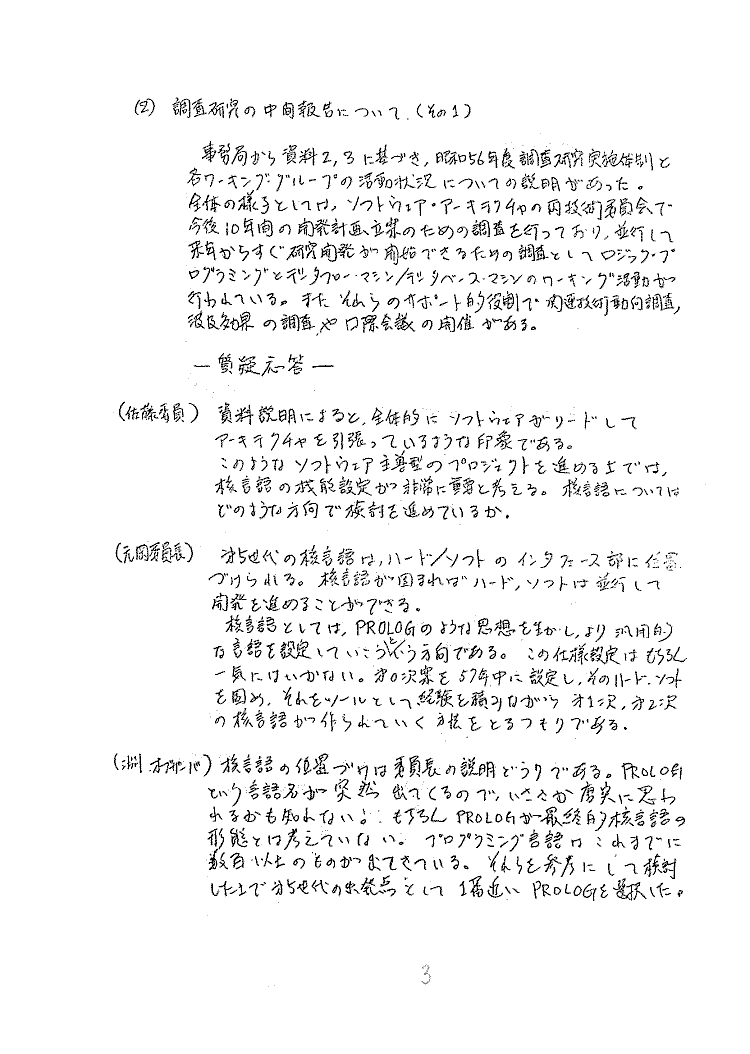 (2) 調査研究の中間報告について.(その1)
事務局から資料2,3に基づき,昭和56年度調査研究実施体制と
各ワーキング・グループの活動状況についての説明があった。
全体の様子としては,ソフトウェア・アーキテクチャの両技術委員会で
今後10年間の開発計画立案のための調査を行っており,並行して
来年からすぐ研究開発が開始できるための調査としてロジック・プ
ログラミングとデータフロー・マシン/データベース・マシンのワーキング活動が
行われている。また それらのサポート的役割で 関連技術動向調査,
波及効果の調査や口際会議の開催がある。
― 質疑応答 ―
(佐藤委員) 資料説明によると,全体的に ソフトウェアがリードして
アーキテクチャを引張っているような印象である。
このような ソフトウェア主導型のプロジェクトを進める上では,
核言語の機能設定が非常に重要と考える。核言語については
どのような方向で検討を進めているか.
(元岡委員長) 才5世代の核言語は,ハード/ソフトのインタフェース部に位置
づけられる。核言語が固まればハード,ソフトは並行して
開発を進めることができる.
核言語としては,PROLOGのような思想を生かし,より汎用的
な言語を設定していこうという方向である。この仕様設定はもちろん
一気にはいかない。才0次案を57年中に設定し,そのハード.ソフト
を固め,それをツールとして経験を積みながら才1次,才2次
の核言語が作られていく方法をとるつもりである.
(渕オブザーバ) 核言語の位置づけは委員長の説明どうりである。PROLOG
という言語名が突然出てくるので,いささか唐突に思わ
れるかも知れない。もちろんPROLOGが最終的核言語の
形態とは考えていない。プログラミング言語はこれまでに
数百以上のものが出てきている。それらを参考にして検討
した上で才5世代の出発点として1番近いPROLOGを選択した。
3